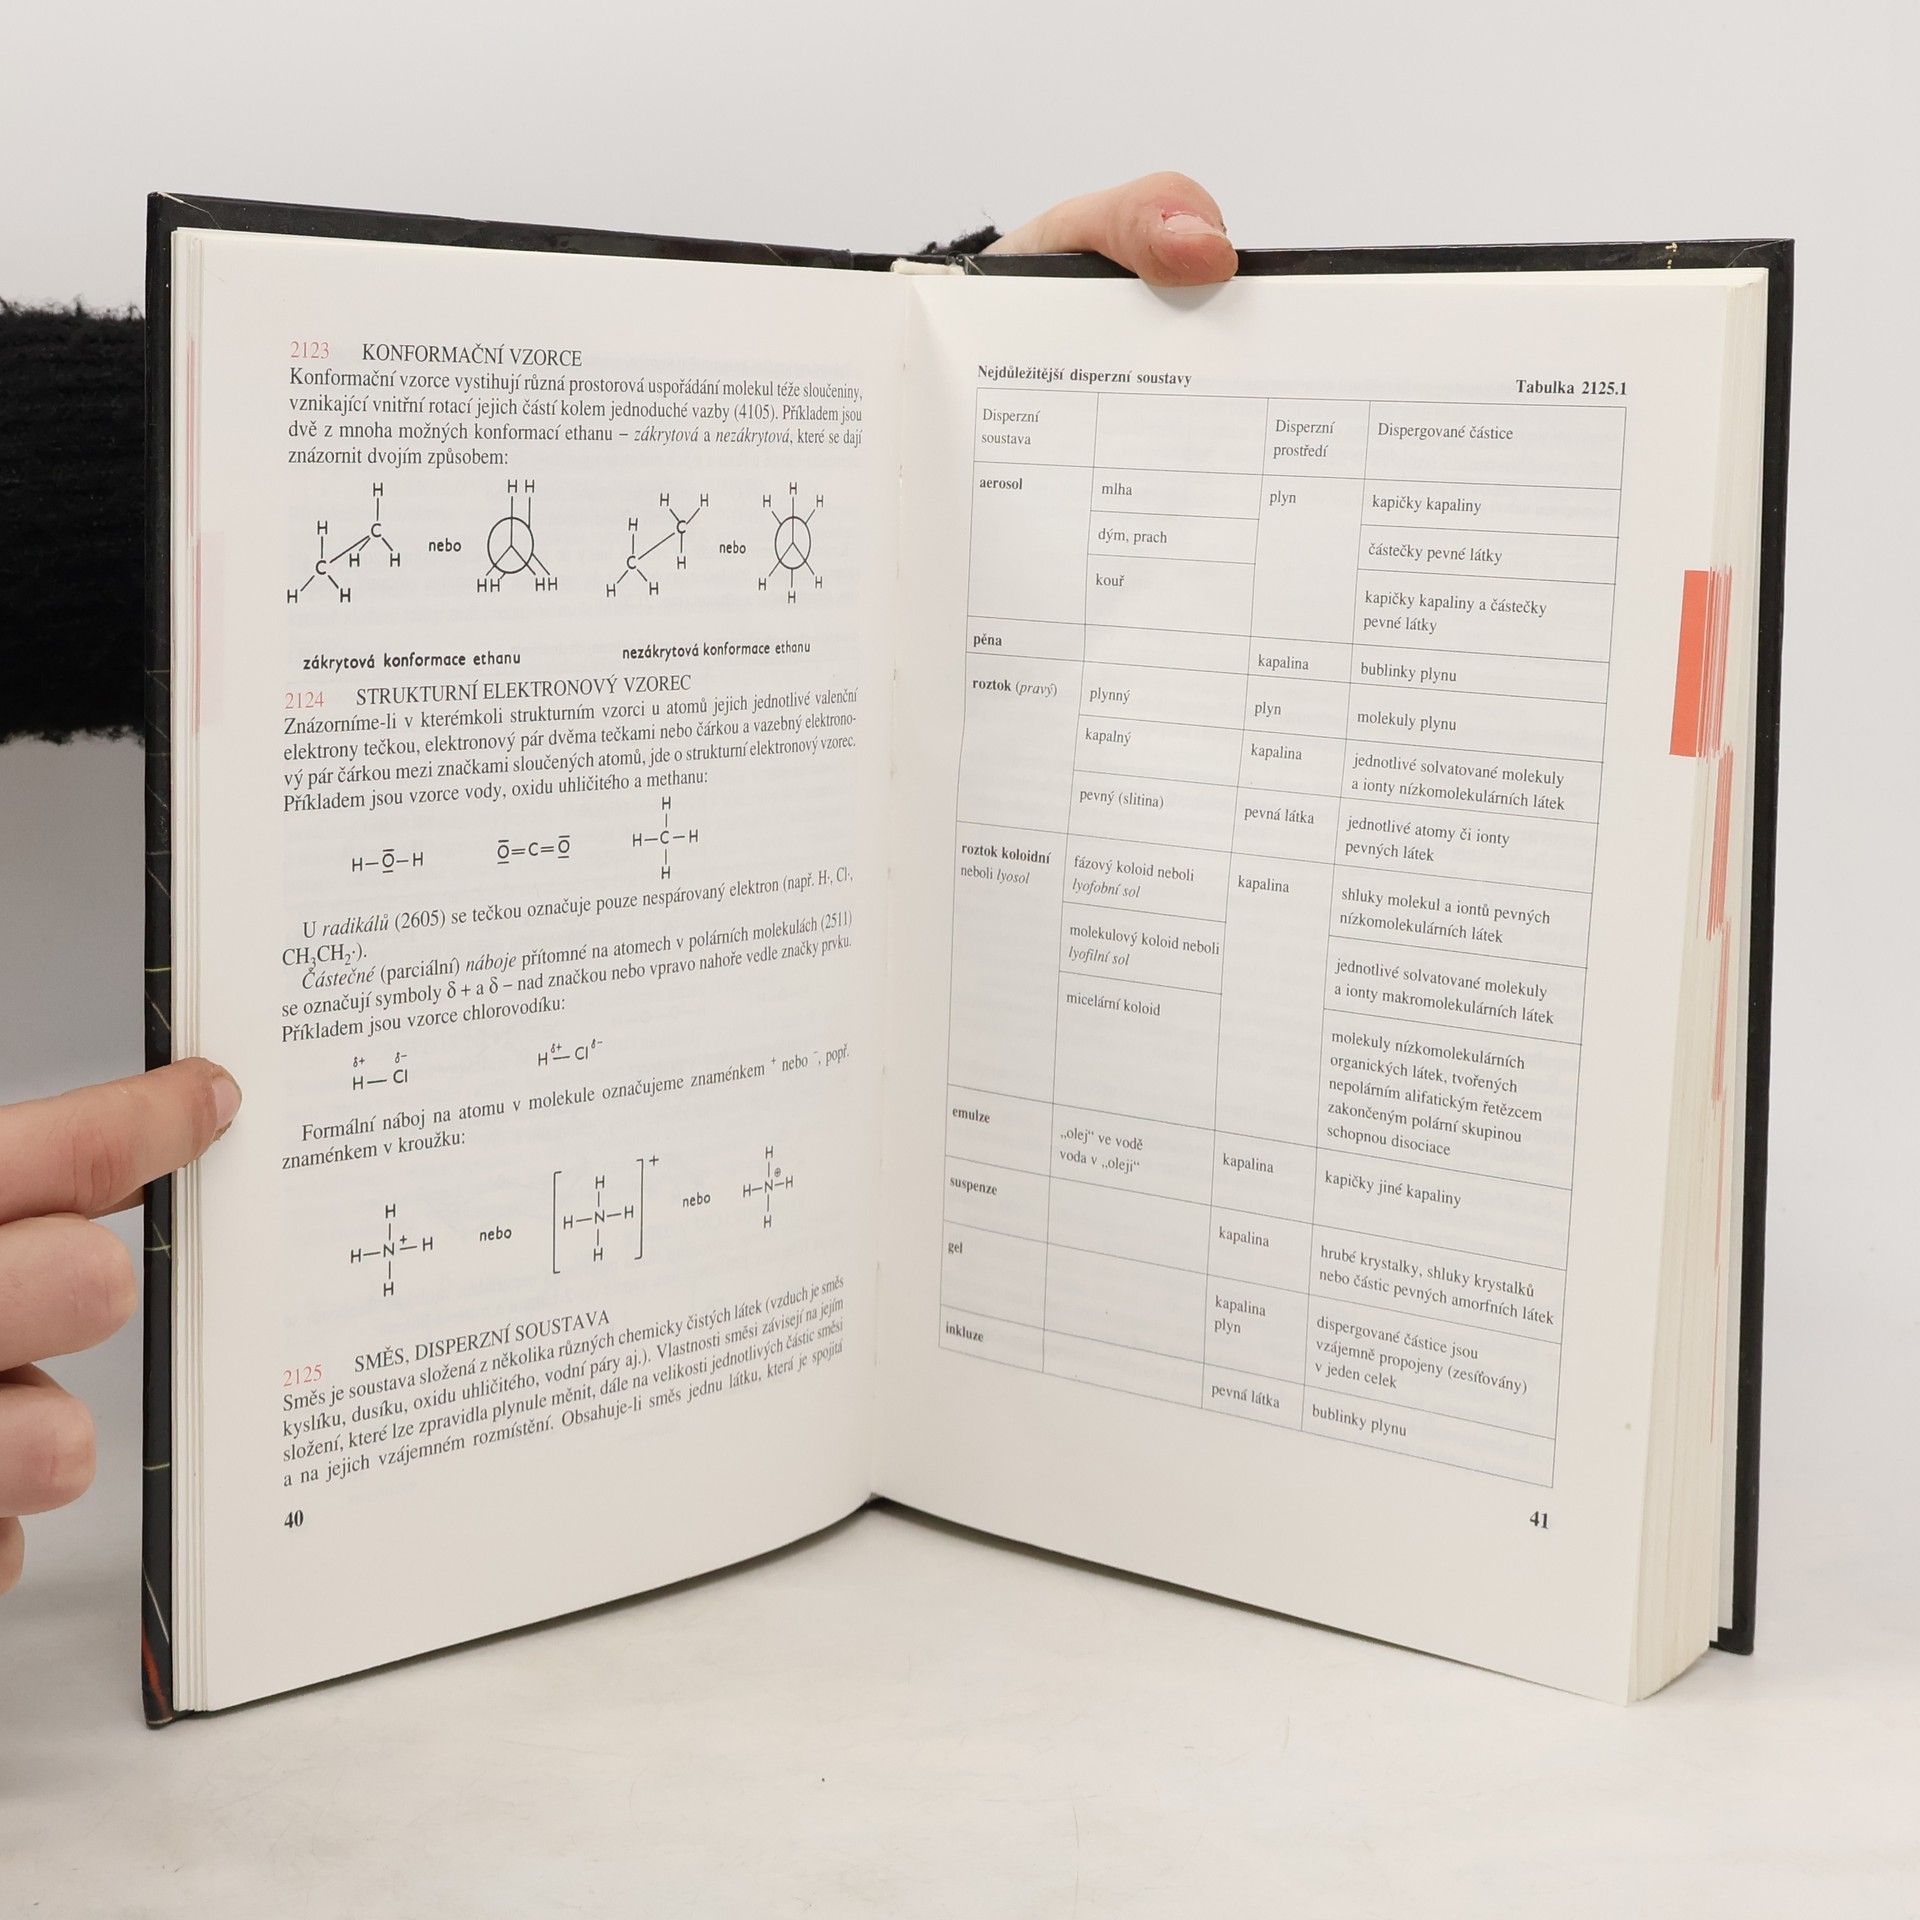 2123 KONFORMAČNÍ VZORCE
Konformační vzorce vystihují různá prostorová uspořádání molekul téže sloučeniny,
vznikající vnitřní rotací jejich částí kolem jednoduché vazby (4105). Příkladem jsou
dvě z mnoha možných konformací ethanu – zákrytová a nezákrytová, které se dají
znázornit dvojím způsobem:
H H H H H H H H
H H H
C nebo C nebo
C H H C H
H H HH HH H H H H H
zákrytová konformace ethanu nezákrytová konformace ethanu
2124 STRUKTURNÍ ELEKTRONOVÝ VZOREC
Znázorníme-li v kterémkoli strukturním vzorci u atomů jejich jednotlivé valenční
elektrony tečkou, elektronový pár dvěma tečkami nebo čárkou a vazebný elektrono-
vý pár čárkou mezi značkami sloučených atomů, jde o strukturní elektronový vzorec.
Příkladem jsou vzorce vody, oxidu uhličitého a methanu:
H
H–O–H O=C=O H–C–H
H
U radikálů (2605) se tečkou označuje pouze nespárovaný elektron (např. H·, Cl·,
CH₃CH₂·).
Částečné (parciální) náboje přítomné na atomech v polárních molekulách (2511)
se označují symboly δ + a δ – nad značkou nebo vpravo nahoře vedle značky prvku.
Příkladem jsou vzorce chlorovodíku:
δ+ δ–
H — Cl H^δ+ — Cl^δ–
Formální náboj na atomu v molekule označujeme znaménkem ⁺ nebo ⁻, popř.
znaménkem v kroužku:
H H H
H–N⁺–H nebo [H–N–H]⁺ nebo H–N⊕–H
H H H
2125 SMĚS, DISPERZNÍ SOUSTAVA
Směs je soustava složená z několika různých chemicky čistých látek (vzduch je směs
kyslíku, dusíku, oxidu uhličitého, vodní páry aj.). Vlastnosti směsi závisejí na jejím
složení, které lze zpravidla plynule měnit, dále na velikosti jednotlivých částic směsi
a na jejich vzájemném rozmístění. Obsahuje-li směs jednu látku, která je spojitá
40
Nejdůležitější disperzní soustavy Tabulka 2125.1
Disperzní
soustava
Disperzní
prostředí
Dispergované částice
aerosol mlha plyn kapičky kapaliny
dým, prach částečky pevné látky
kouř kapičky kapaliny a částečky
pevné látky
pěna kapalina bublinky plynu
roztok (pravý) plynný plyn molekuly plynu
kapalný kapalina jednotlivé solvatované molekuly
a ionty nízkomolekulárních látek
pevný (slitina) pevná látka jednotlivé atomy či ionty
pevných látek
roztok koloidní
neboli lyosol
fázový koloid neboli
lyofobní sol
kapalina
shluky molekul a iontů pevných
nízkomolekulárních látek
molekulový koloid neboli
lyofilní sol
jednotlivé solvatované molekuly
a ionty makromolekulárních látek
micelární koloid
molekuly nízkomolekulárních
organických látek, tvořených
nepolárním alifatickým řetězcem
zakončeným polární skupinou
schopnou disociace
emulze
„olej“ ve vodě
voda v „oleji“
kapalina
kapičky jiné kapaliny
suspenze
kapalina
hrubé krystalky, shluky krystalků
nebo částic pevných amorfních látek
gel
kapalina
plyn
dispergované částice jsou
vzájemně propojeny (zesíťovány)
v jeden celek
inkluze
pevná látka
bublinky plynu
41